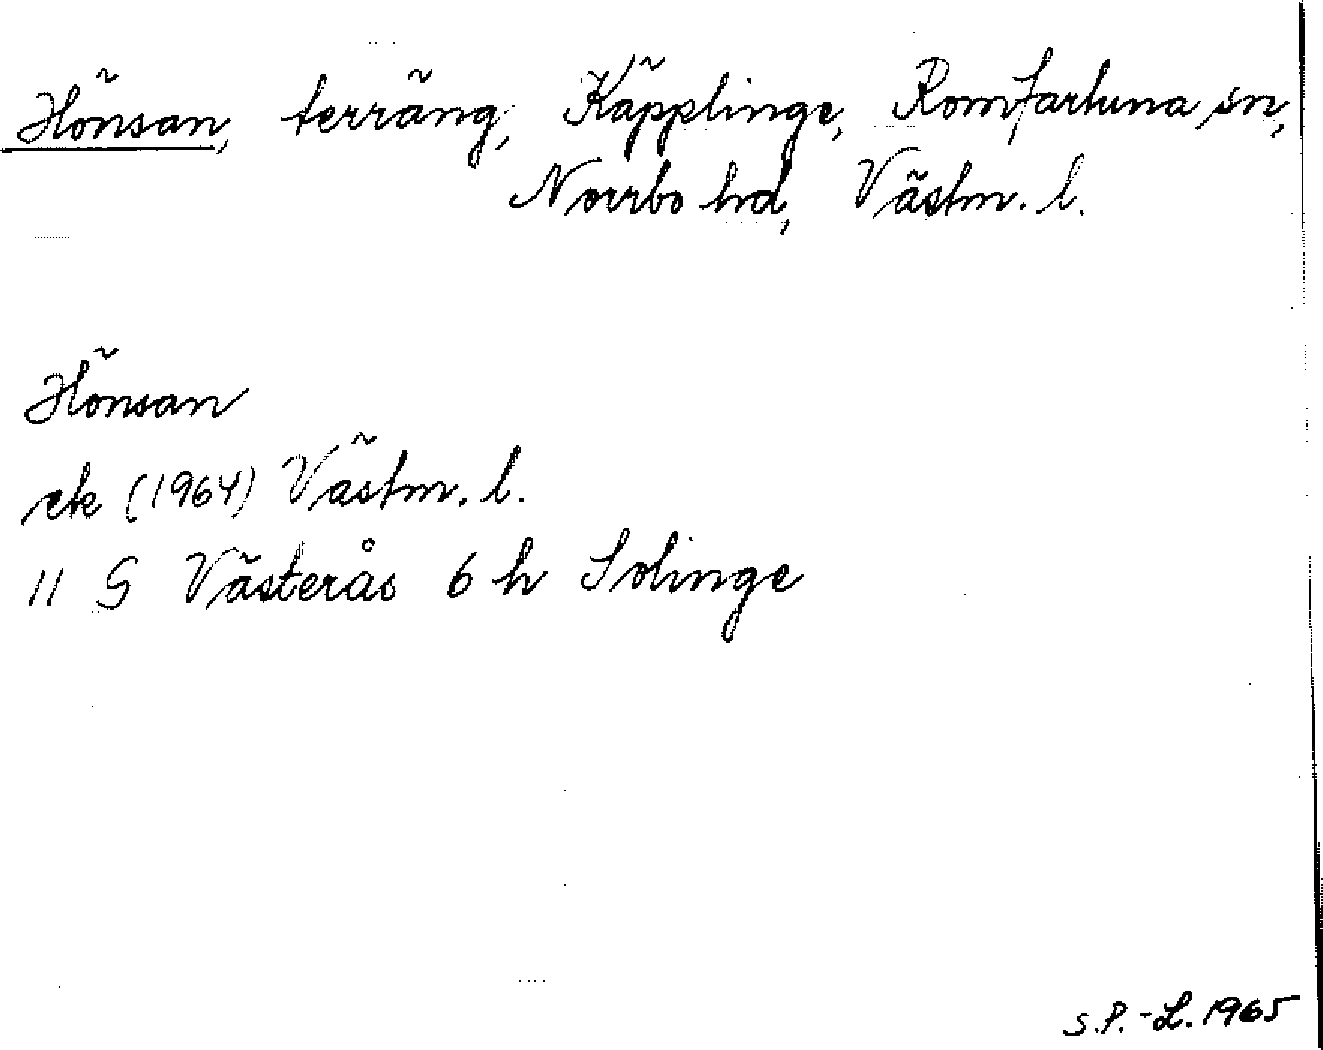 Hönsan, terräng, Käpplinge, Romfartuna sn,
Norrbo hd, Västm. l.
Hönsan
ek (1964) Västm. l.
11 G Västerås 6 h Solinge
S.P.-L. 1965